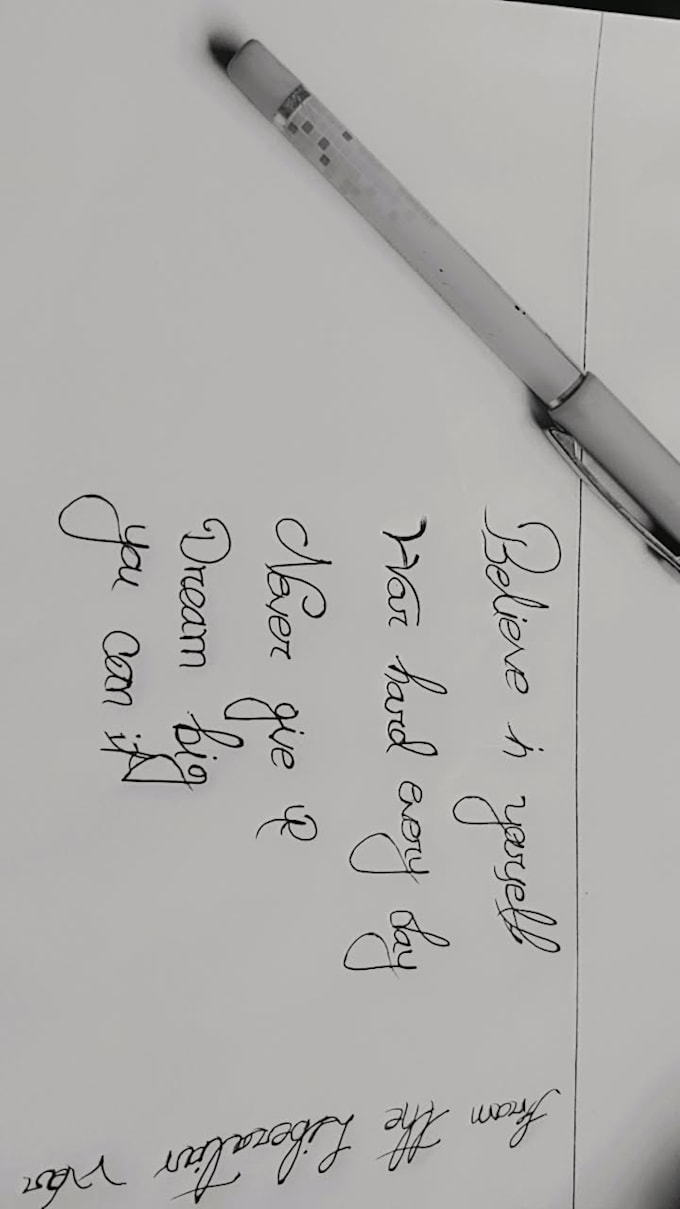 Believe in yourself
War hard every day
Never give up
Dream big
you can if
from the Liberation War